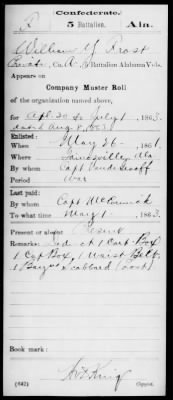 Confederate.
5 Battalion. Ala.
William Y Prost
Private, Co. A, 5 Battalion Alabama Vols.
Appears on
Company Muster Roll
of the organization named above,
for Apl. 30 to July 1, 1863.
dated Aug 8, 1863
Enlisted:
When May 26, 1861.
Where Gainesville, Ala
By whom Capt Vandegraaff
Period War
Last paid:
By whom Capt McCormick
To what time May 1, 1863.
Present or absent Present
Remarks: Ind. at 1 Cart. Box
1 Cap Box, 1 Waist Belt,
1 Bayo Scabbard (cost)
Book mark:
(642)
Copyist.